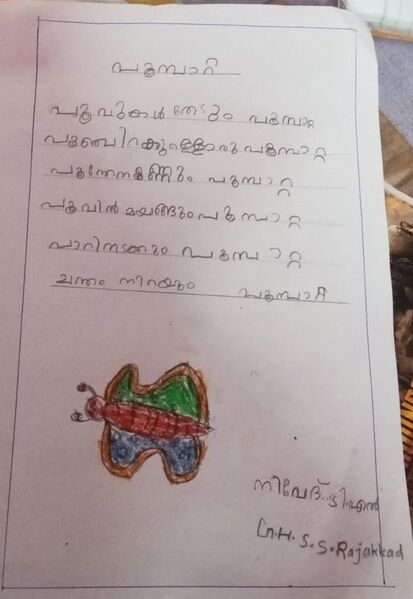 പൂമ്പാറ്റ
പൂവുകൾ തേടും പൂമ്പാറ്റ
പൂഞ്ചിറകുള്ളൊരു പൂമ്പാറ്റ
പൂന്തേനുണ്ണും പൂമ്പാറ്റ
പൂവിൽ മയങ്ങും പൂമ്പാറ്റ
പാറിനടക്കും പൂമ്പാറ്റ
ചന്തം നിറയും പൂമ്പാറ്റ
നിവേദ്. ടി. എൻ
G.H.S.S. Rajakkad